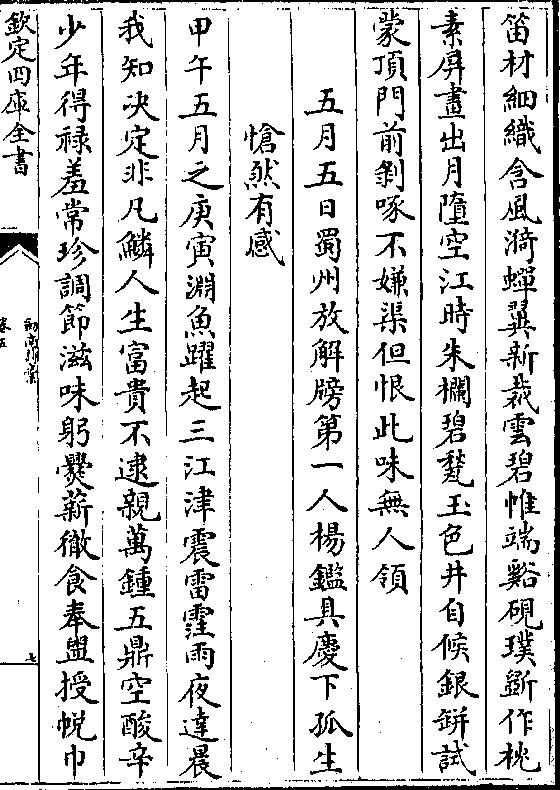 笛材細織含風漪蟬翼新裁雲碧帷端谿硯璞斲作枕
素屏畫出月墮空江時朱欄碧甃玉色井自候銀缾試
蒙頂門前剝啄不嫌渠但恨此味無人領
五月五日蜀州放解牓第一人楊鑑具慶下孤生
愴然有感
甲午五月之庚寅淵魚躍起三江津震雷霔雨夜達晨
我知決定非凡鱗人生富貴不逮親萬鍾五鼎空酸辛
少年得祿羞常珍調節滋味躬爨薪徹食奉盥授帨巾
欽定四庫全書
劍南詩稾
卷五
七